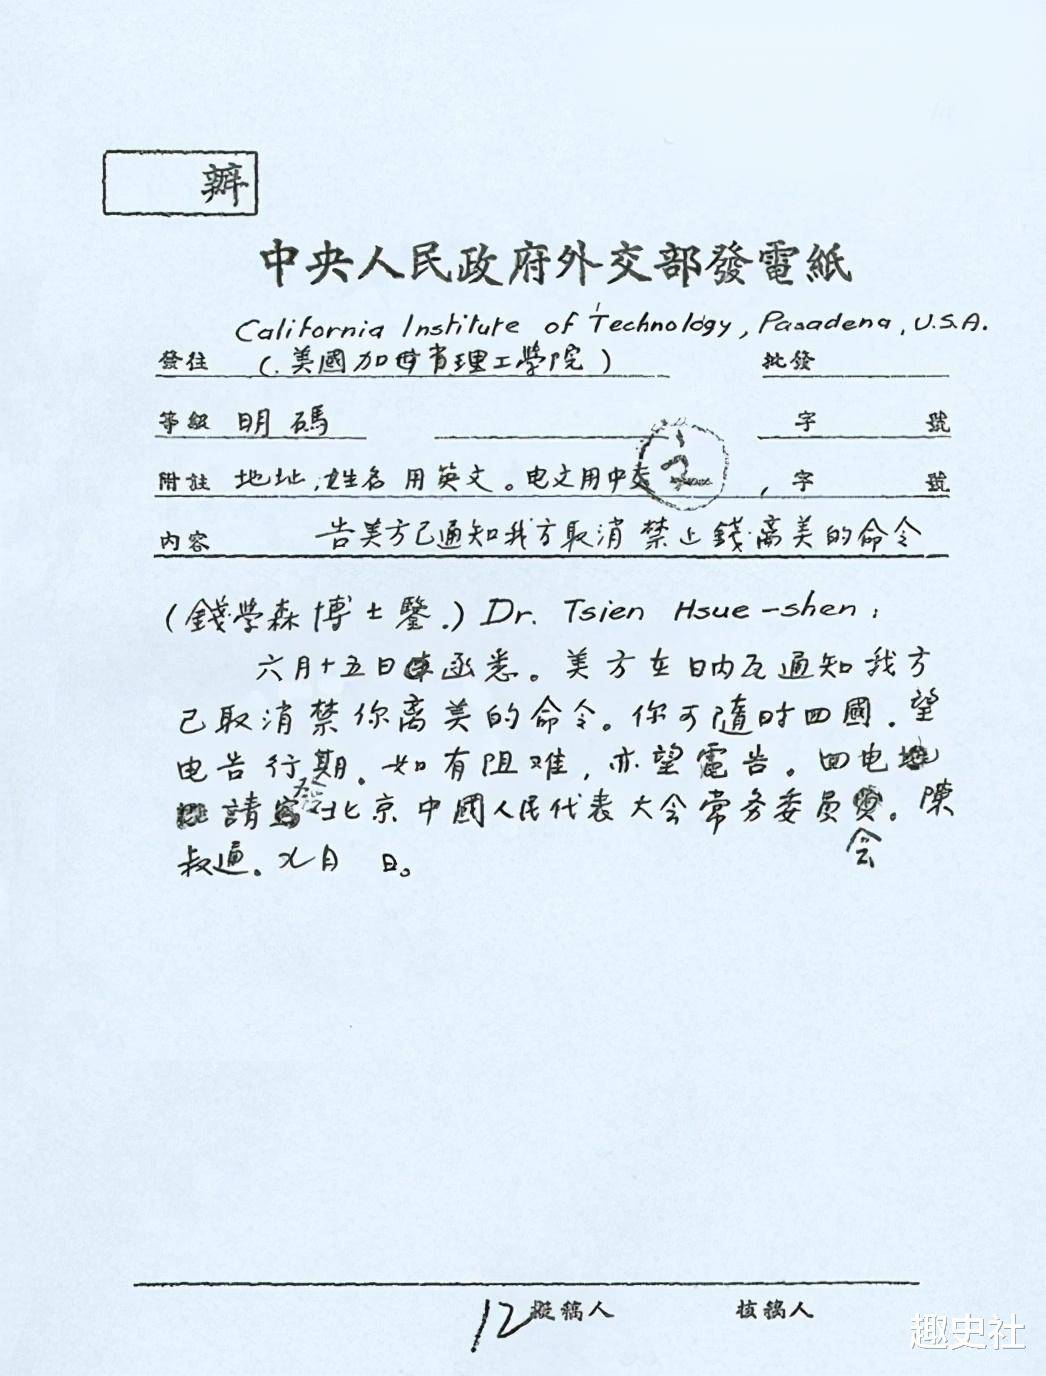 辦
中央人民政府外交部發電紙
California Institute of Technology, Pasadena, U.S.A.
發往 (美國加州省理工學院) 批發
等級 明碼 字 號
附註 地址,姓名用英文。电文用中文 , 字 號
内容 告美方已通知我方取消禁止錢离美的命令
(錢學森博士鑒.) Dr. Tsien Hsue-shen:
六月十五日函悉。美方在日内瓦通知我方
已取消禁你离美的命令。你可隨时回國。望
电告行期。如有阻难,亦望電告。回电
請發北京中國人民代表大会常务委員会。陳
叔通。九月 日。
12 擬稿人 核稿人
趣史社